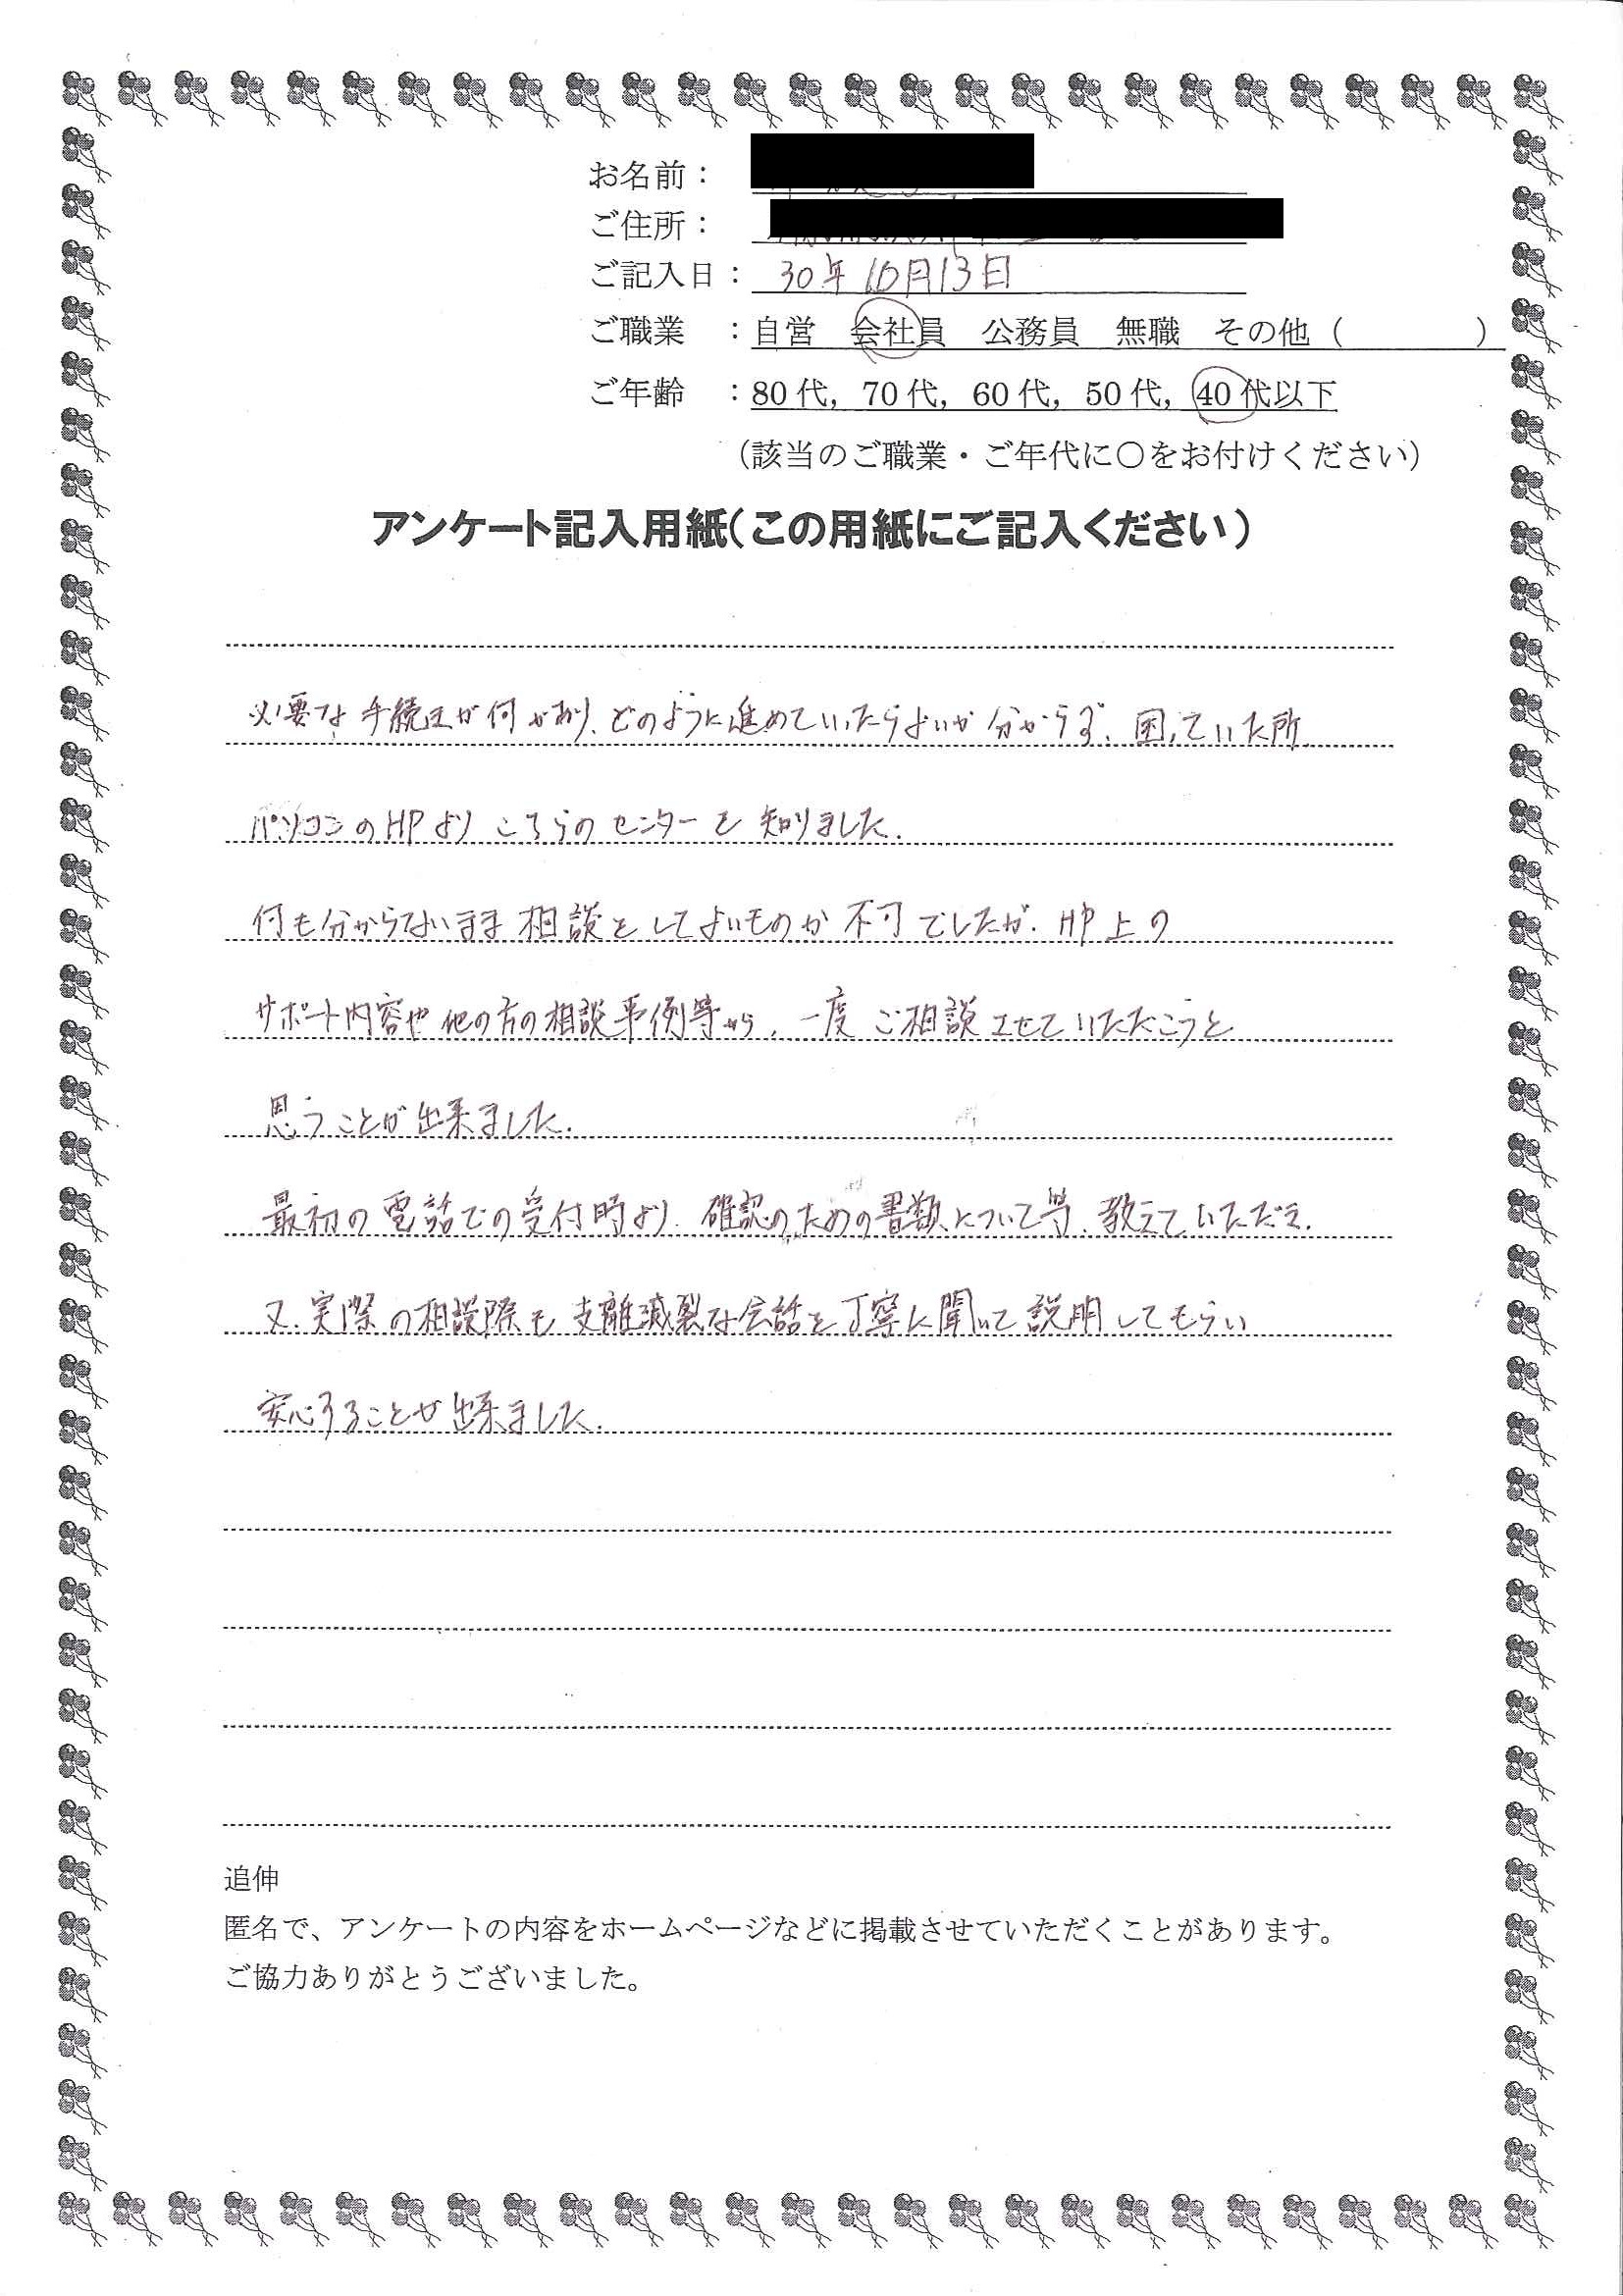 お名前：
ご住所：
ご記入日： 30年10月13日
ご職業 ：自営 会社員 公務員 無職 その他（ ）
ご年齢 ：80代，70代，60代，50代，40代以下
（該当のご職業・ご年代に〇をお付けください）
アンケート記入用紙（この用紙にご記入ください）
必要な手続きが何があり、どのように進めていいたらよいか分からず、困っていた所、
パソコンのHPよりこちらのセンターを知りました。
何も分からないまま相談をしてよいものか不可でしたが、HP上の
サポート内容や他の方の相談事例等から、一度ご相談させていただこうと
思うことが出来ました。
最初の電話での受付時より、確認のための書類について等、教えていただき、
又、実際の相談際も支離滅裂な会話を丁寧に聞いて説明してもらい
安心することが出来ました。
追伸
匿名で、アンケートの内容をホームページなどに掲載させていただくことがあります。
ご協力ありがとうございました。